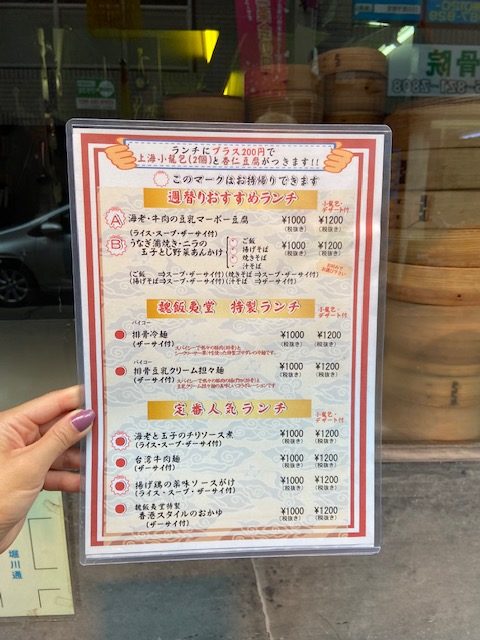 ランチにプラス200円で
上海小籠包(2個)と杏仁豆腐がつきます!!
このマークはお持帰りできます
週替りおすすめランチ
小籠包・デザート付
A 海老・牛肉の豆乳マーボー豆腐 ¥1000 ¥1200
(ライス・スープ・ザーサイ付) (税抜き) (税抜き)
B うなぎ蒲焼き・ニラの ¥1000 ¥1200
玉子とじ野菜あんかけ (税抜き) (税抜き)
ご飯
揚げそば
焼きそば
汁そば
(ご飯 ⇒スープ・ザーサイ付)(焼きそば⇒スープ・ザーサイ付)
(揚げそば⇒スープ・ザーサイ付)(汁そば ⇒ザーサイ付)
魏飯夷堂 特製ランチ
小籠包・デザート付
パイコー
排骨冷麺 ¥1000 ¥1200
(ザーサイ付) (税抜き) (税抜き)
パイコー
排骨豆乳クリーム担々麺 ¥1000 ¥1200
(ザーサイ付) (税抜き) (税抜き)
定番人気ランチ
小籠包・デザート付
海老と玉子のチリソース煮 ¥1000 ¥1200
(ライス・スープ・ザーサイ付) (税抜き) (税抜き)
台湾牛肉麺 ¥1000 ¥1200
(ザーサイ付) (税抜き) (税抜き)
揚げ鶏の薬味ソースがけ ¥1000 ¥1200
(ライス・スープ・ザーサイ付) (税抜き) (税抜き)
魏飯夷堂特製
香港スタイルのおかゆ ¥1000 ¥1200
(ザーサイ付) (税抜き) (税抜き)
堀川通
骨院